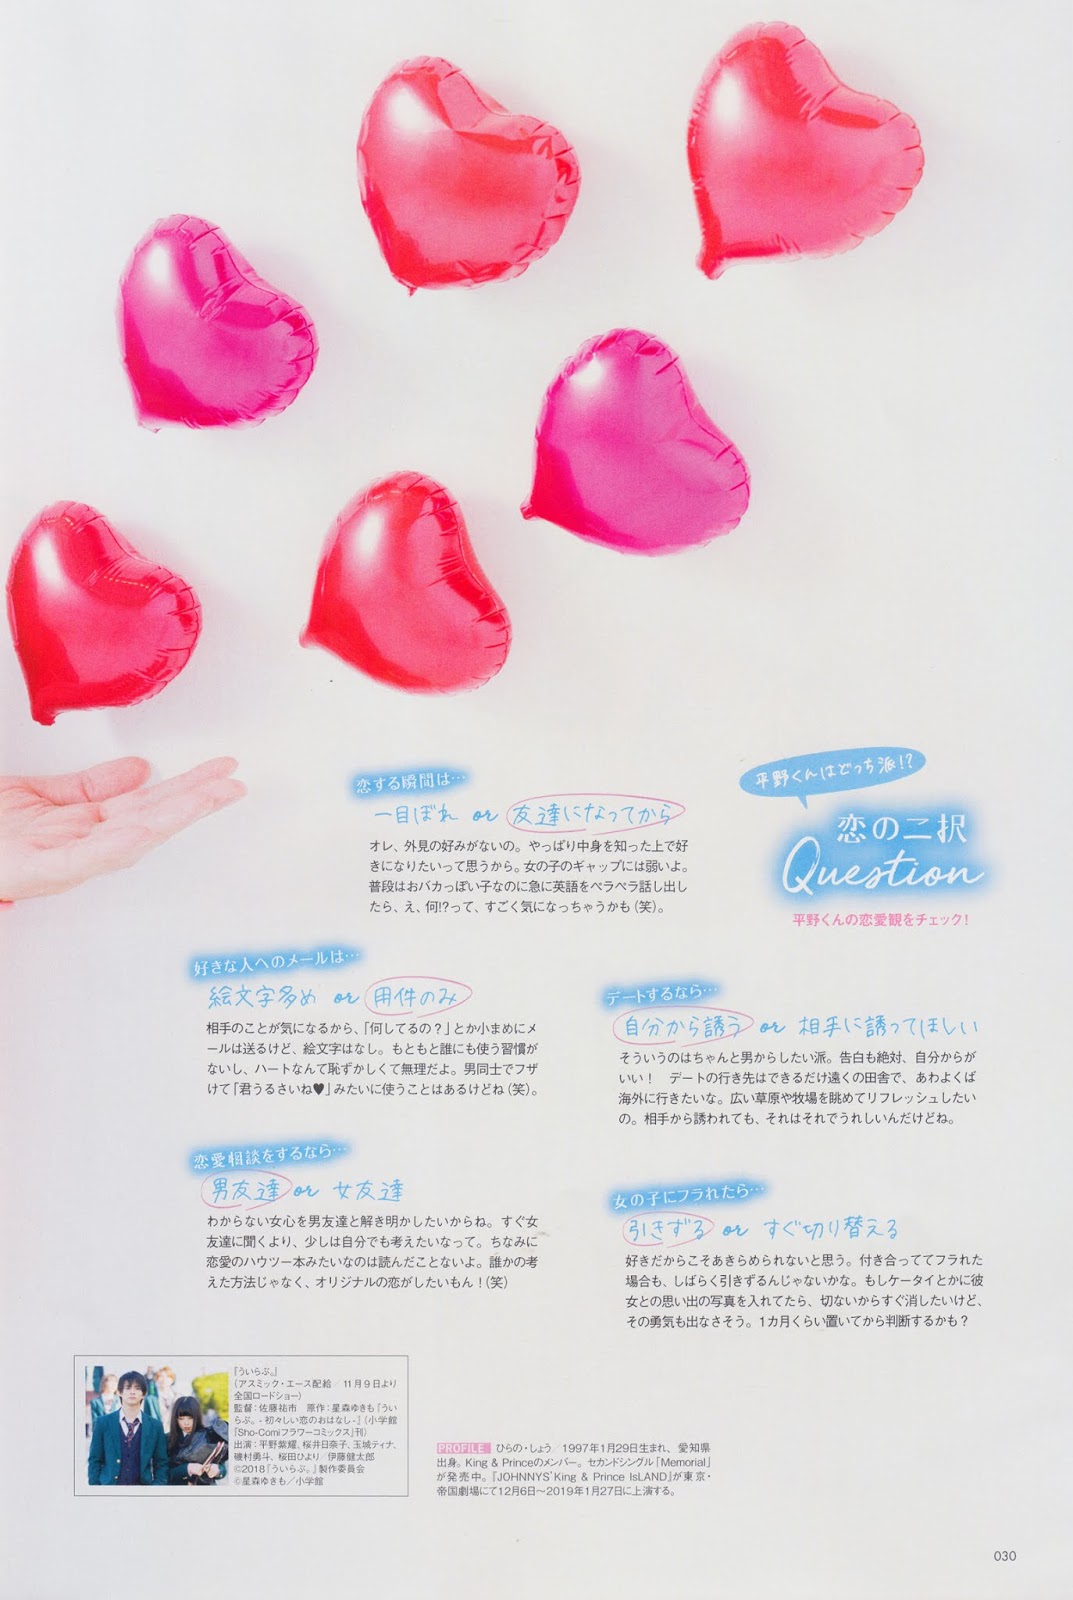 平野くんはどっち派!?
恋の二択
Question
平野くんの恋愛観をチェック!
恋する瞬間は…
一目ぼれ or 友達になってから
オレ、外見の好みがないの。やっぱり中身を知った上で好
きになりたいって思うから。女の子のギャップには弱いよ。
普段はおバカっぽい子なのに急に英語をペラペラ話し出し
たら、え、何!?って、すごく気になっちゃうかも(笑)。
好きな人へのメールは…
絵文字多め or 用件のみ
相手のことが気になるから、「何してるの?」とか小まめにメ
ールは送るけど、絵文字はなし。もともと誰にも使う習慣が
ないし、ハートなんて恥ずかしくて無理だよ。男同士でフザ
けて「君うるさいね♥」みたいに使うことはあるけどね(笑)。
デートするなら…
自分から誘う or 相手に誘ってほしい
そういうのはちゃんと男からしたい派。告白も絶対、自分からが
いい! デートの行き先はできるだけ遠くの田舎で、あわよくば
海外に行きたいな。広い草原や牧場を眺めてリフレッシュしたい
の。相手から誘われても、それはそれでうれしいんだけどね。
恋愛相談をするなら…
男友達 or 女友達
わからない女心を男友達と解き明かしたいからね。すぐ女
友達に聞くより、少しは自分でも考えたいなって。ちなみに
恋愛のハウツー本みたいなのは読んだことないよ。誰かの考
えた方法じゃなく、オリジナルの恋がしたいもん!(笑)
女の子にフラれたら…
引きずる or すぐ切り替える
好きだからこそあきらめられないと思う。付き合っててフラれた
場合も、しばらく引きずるんじゃないかな。もしケータイとかに彼
女との思い出の写真を入れてたら、切ないからすぐ消したいけど、
その勇気も出なさそう。1カ月くらい置いてから判断するかも?
『ういらぶ。』
(アスミック・エース配給/11月9日より
全国ロードショー)
監督:佐藤祐市 原作:星森ゆきも『うい
らぶ。-初々しい恋のおはなし-』(小学館
「Sho-Comiフラワーコミックス」刊)
出演:平野紫耀、桜井日奈子、玉城ティナ、
磯村勇斗、桜田ひより/伊藤健太郎
©2018『ういらぶ。』製作委員会
©星森ゆきも/小学館
PROFILE ひらの・しょう/1997年1月29日生まれ、愛知県
出身。King & Princeのメンバー。セカンドシングル「Memorial」
が発売中。『JOHNNYS' King & Prince IsLAND』が東京・
帝国劇場にて12月6日～2019年1月27日に上演する。
030